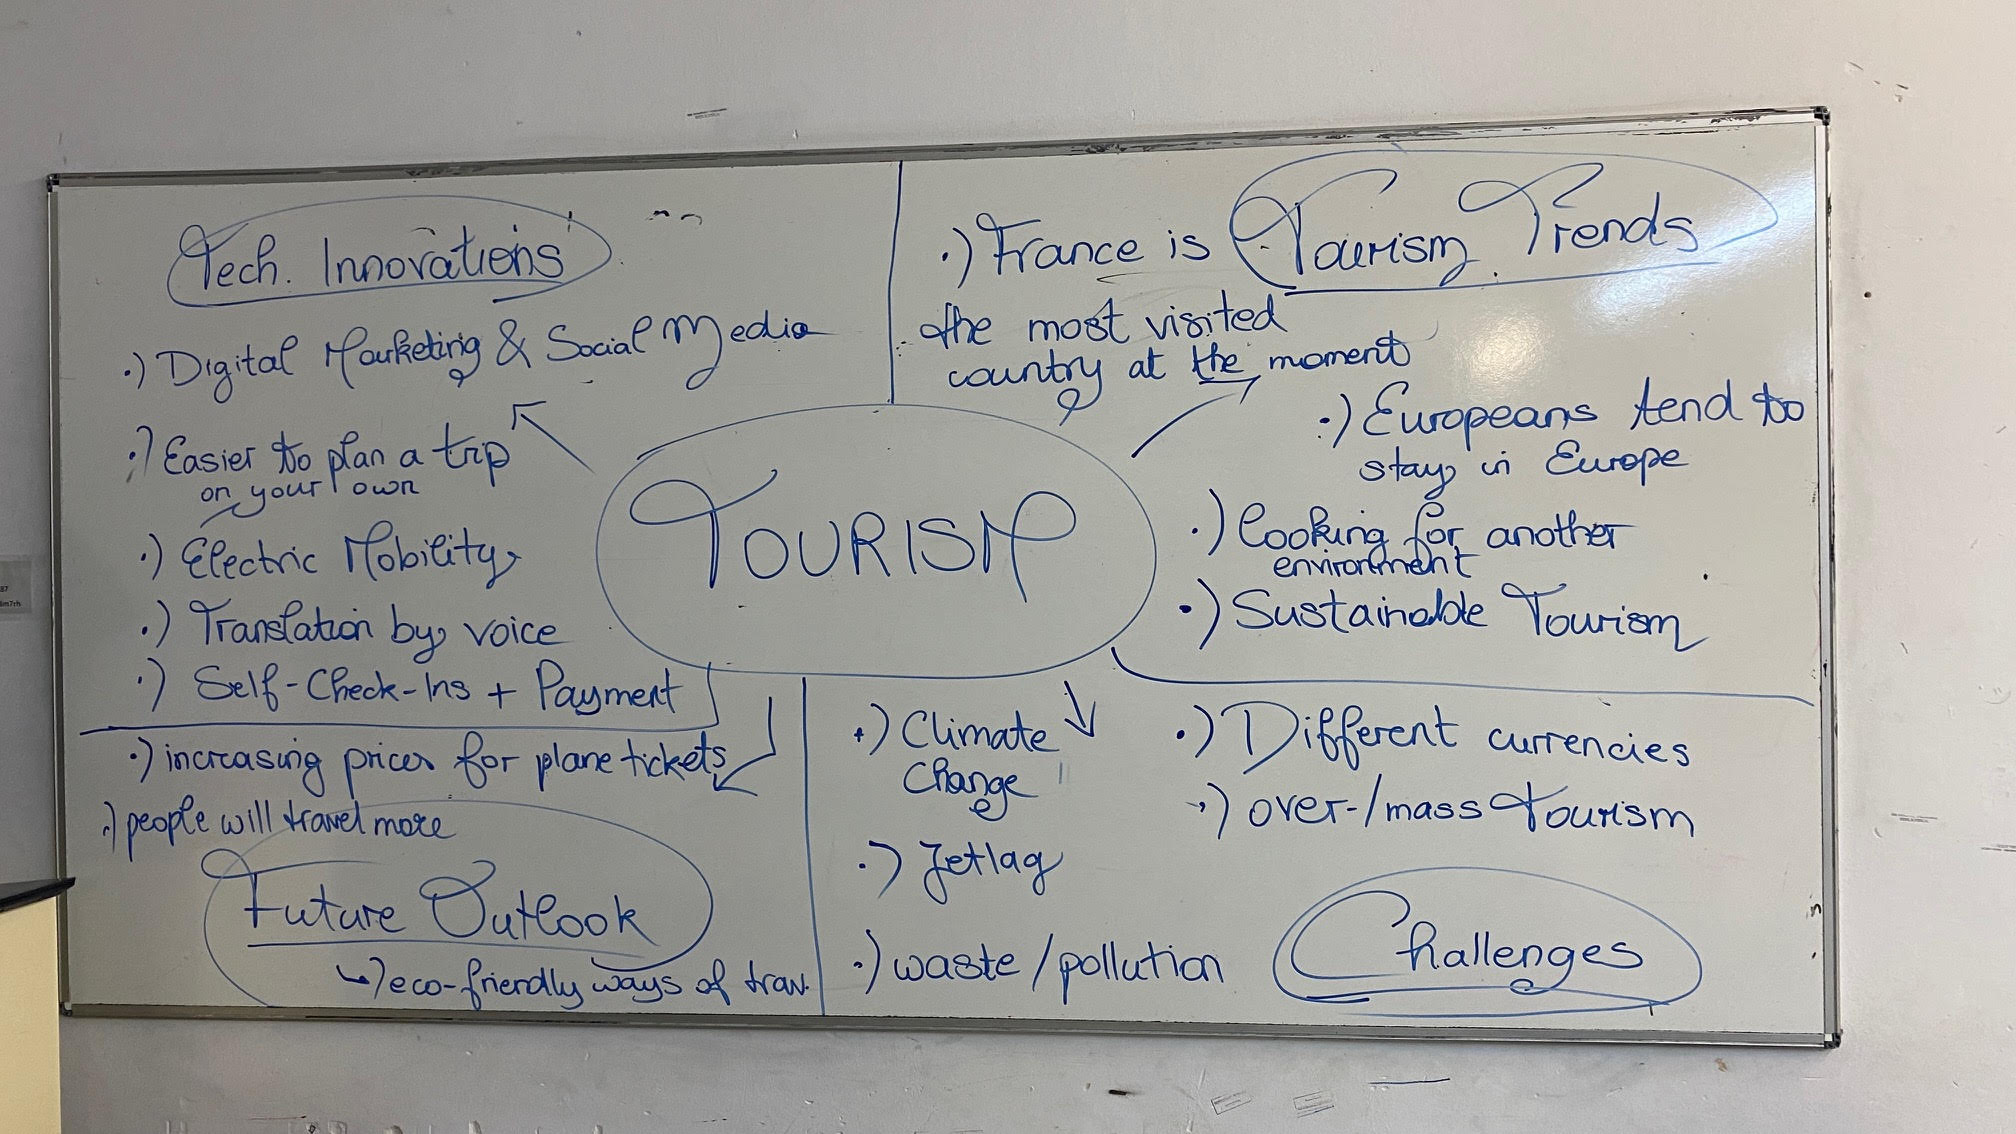 Tech. Innovations
.) Digital Marketing & Social Media
.) Easier to plan a trip
on your own
.) Electric Mobility
.) Translation by voice
.) Self-Check-Ins + Payment
Tourism Trends
.) France is
the most visited
country at the moment
.) Europeans tend to
stay in Europe
.) Looking for another
environment
.) Sustainable Tourism
TOURISM
.) increasing prices for plane tickets
.) people will travel more
Future Outlook
↳) eco-friendly ways of trav.
.) Climate
Change
.) Jetlag
.) waste/pollution
.) Different currencies
.) over-/mass tourism
Challenges